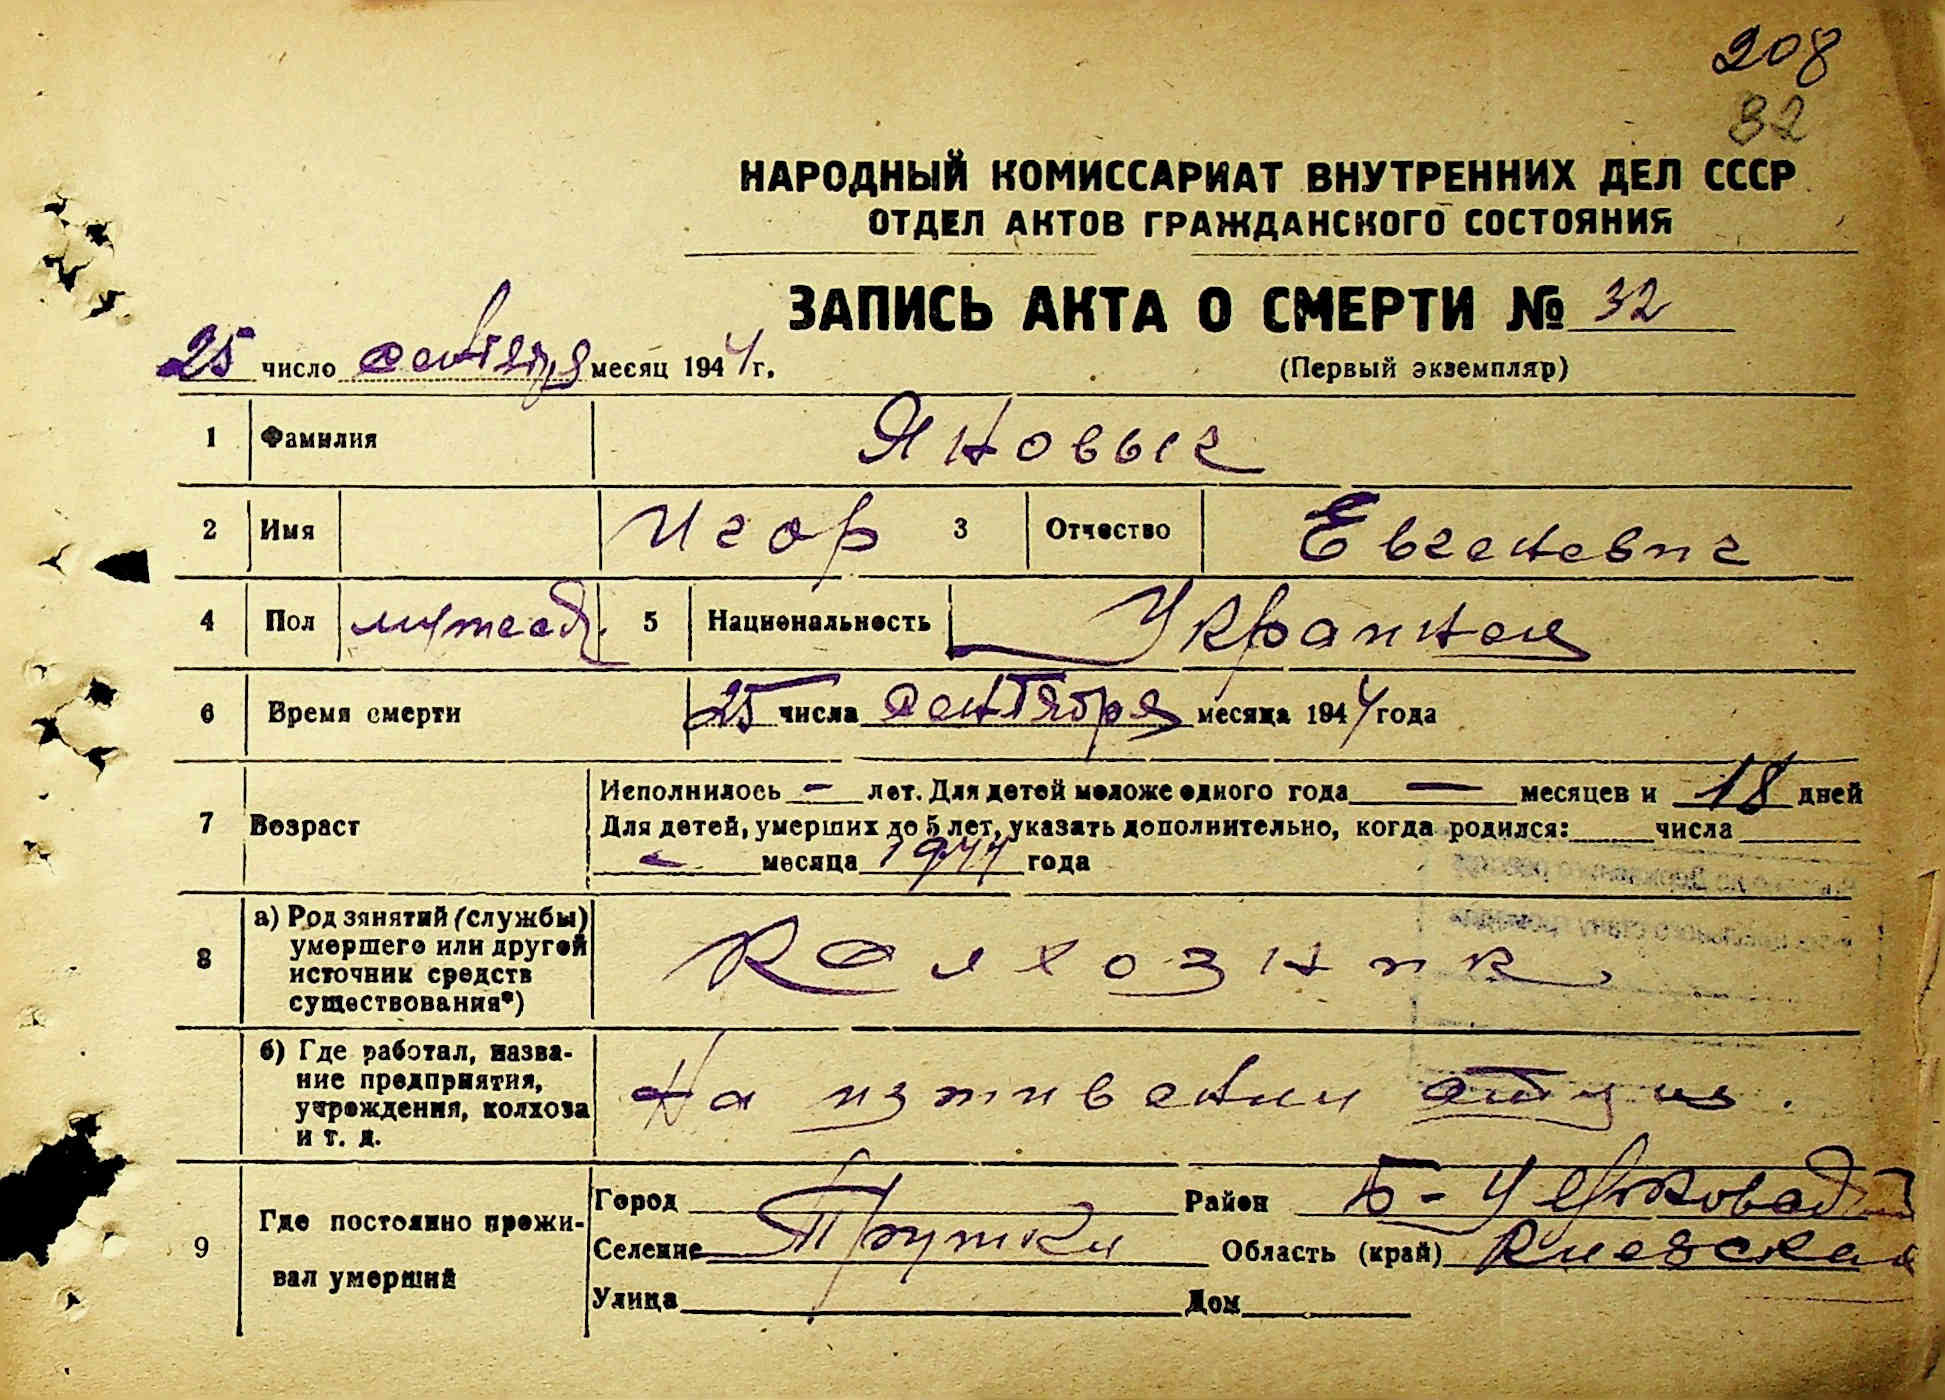 208
32
НАРОДНЫЙ КОМИССАРИАТ ВНУТРЕННИХ ДЕЛ СССР
ОТДЕЛ АКТОВ ГРАЖДАНСКОГО СОСТОЯНИЯ
ЗАПИСЬ АКТА О СМЕРТИ № 32
25 число сентября месяц 1944 г.
(Первый экземпляр)
1 Фамилия Яновых
2 Имя Игор 3 Отчество Евгеневич
4 Пол 5 Национальность Украинец
6 Время смерти 25 числа сентября месяца 1944 года
7 Возраст
Исполнилось — лет. Для детей моложе одного года — месяцев и 18 дней
Для детей, умерших до 5 лет, указать дополнительно, когда родился: числа
— месяца 1944 года
8 а) Род занятий (службы) умершего или другой источник средств существования*) Колхозник
б) Где работал, название предприятия, учреждения, колхоза и т. д. На иживении отца.
9 Где постоянно проживал умерший
Город Район Б-Церковский
Селение Трушки Область (край) Киевская
Улица Дом